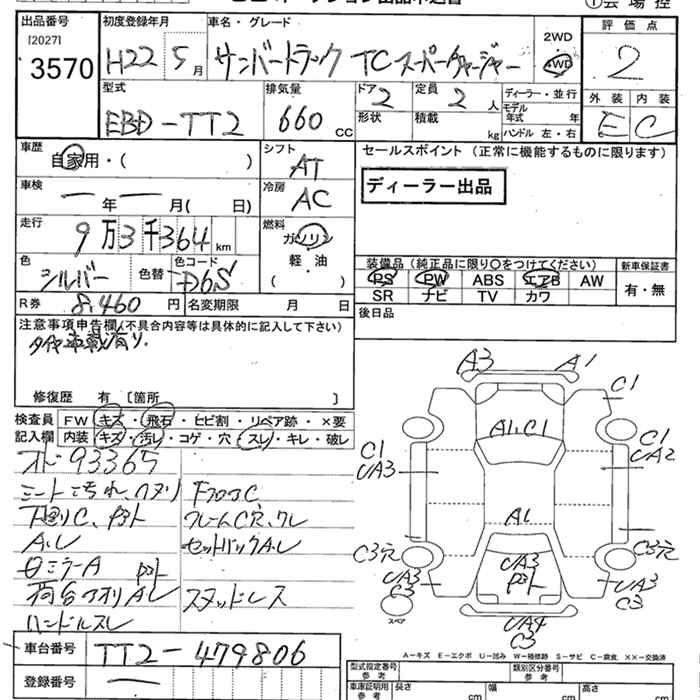 ①会場控
出品番号 初度登録年月 車名・グレード 2WD 評価点
[2027]
3570 H22 5月 サンバートラック TC スーパーチャージャー 4WD 2
型式 排気量 ドア 定員 ディーラー・並行 外装 内装
EBD-TT2 660 CC 2 2 人 モデル年式 年 E C
形状 積載 kg ハンドル 左・右
車歴 シフト セールスポイント (正常に機能するものに限ります)
自家用・( ) AT
ディーラー出品
車検 冷房
ー年ー月( 日) AC
走行 燃料
9万3千364 km ガソリン
色 色コード 軽・油 装備品 (純正品に限り○をつけてください) 新車保証書
シルバー 色替 D6S ( ) PS PW ABS エアB AW 有・無
SR ナビ TV カワ
R券 8,460 円 名変期限 月 日 後日品
注意事項申告欄(不具合内容等は具体的に記入して下さい)
修復歴 有 [箇所 ]
検査員 FW キズ・飛石・ヒビ割・リペア跡・×要
記入欄 内装 キズ・汚レ・コゲ・穴・スレ・キレ・破レ
オド 93365
シート汚れ、
下廻りC、
Aレ
フレームC穴、
セットバックAレ
ミラーA
荷台アオリAレ スタッドレス
ハンドルスレ
A3 A1
C1
A1,C1
C1 C1
UA3 UA2
A1
C3穴 C3穴
UA3 UA3 UA3
C3 C3
スペア
UA4
C3
A-キズ E-エクボ U-凹み W-補修跡 S-サビ C-腐食 ××-交換済
車台番号 TT2-479806
登録番号 ー
型式指定番号 参考 類別区分番号 参考
車庫証明用 参考 長さ cm 幅 cm 高さ cm